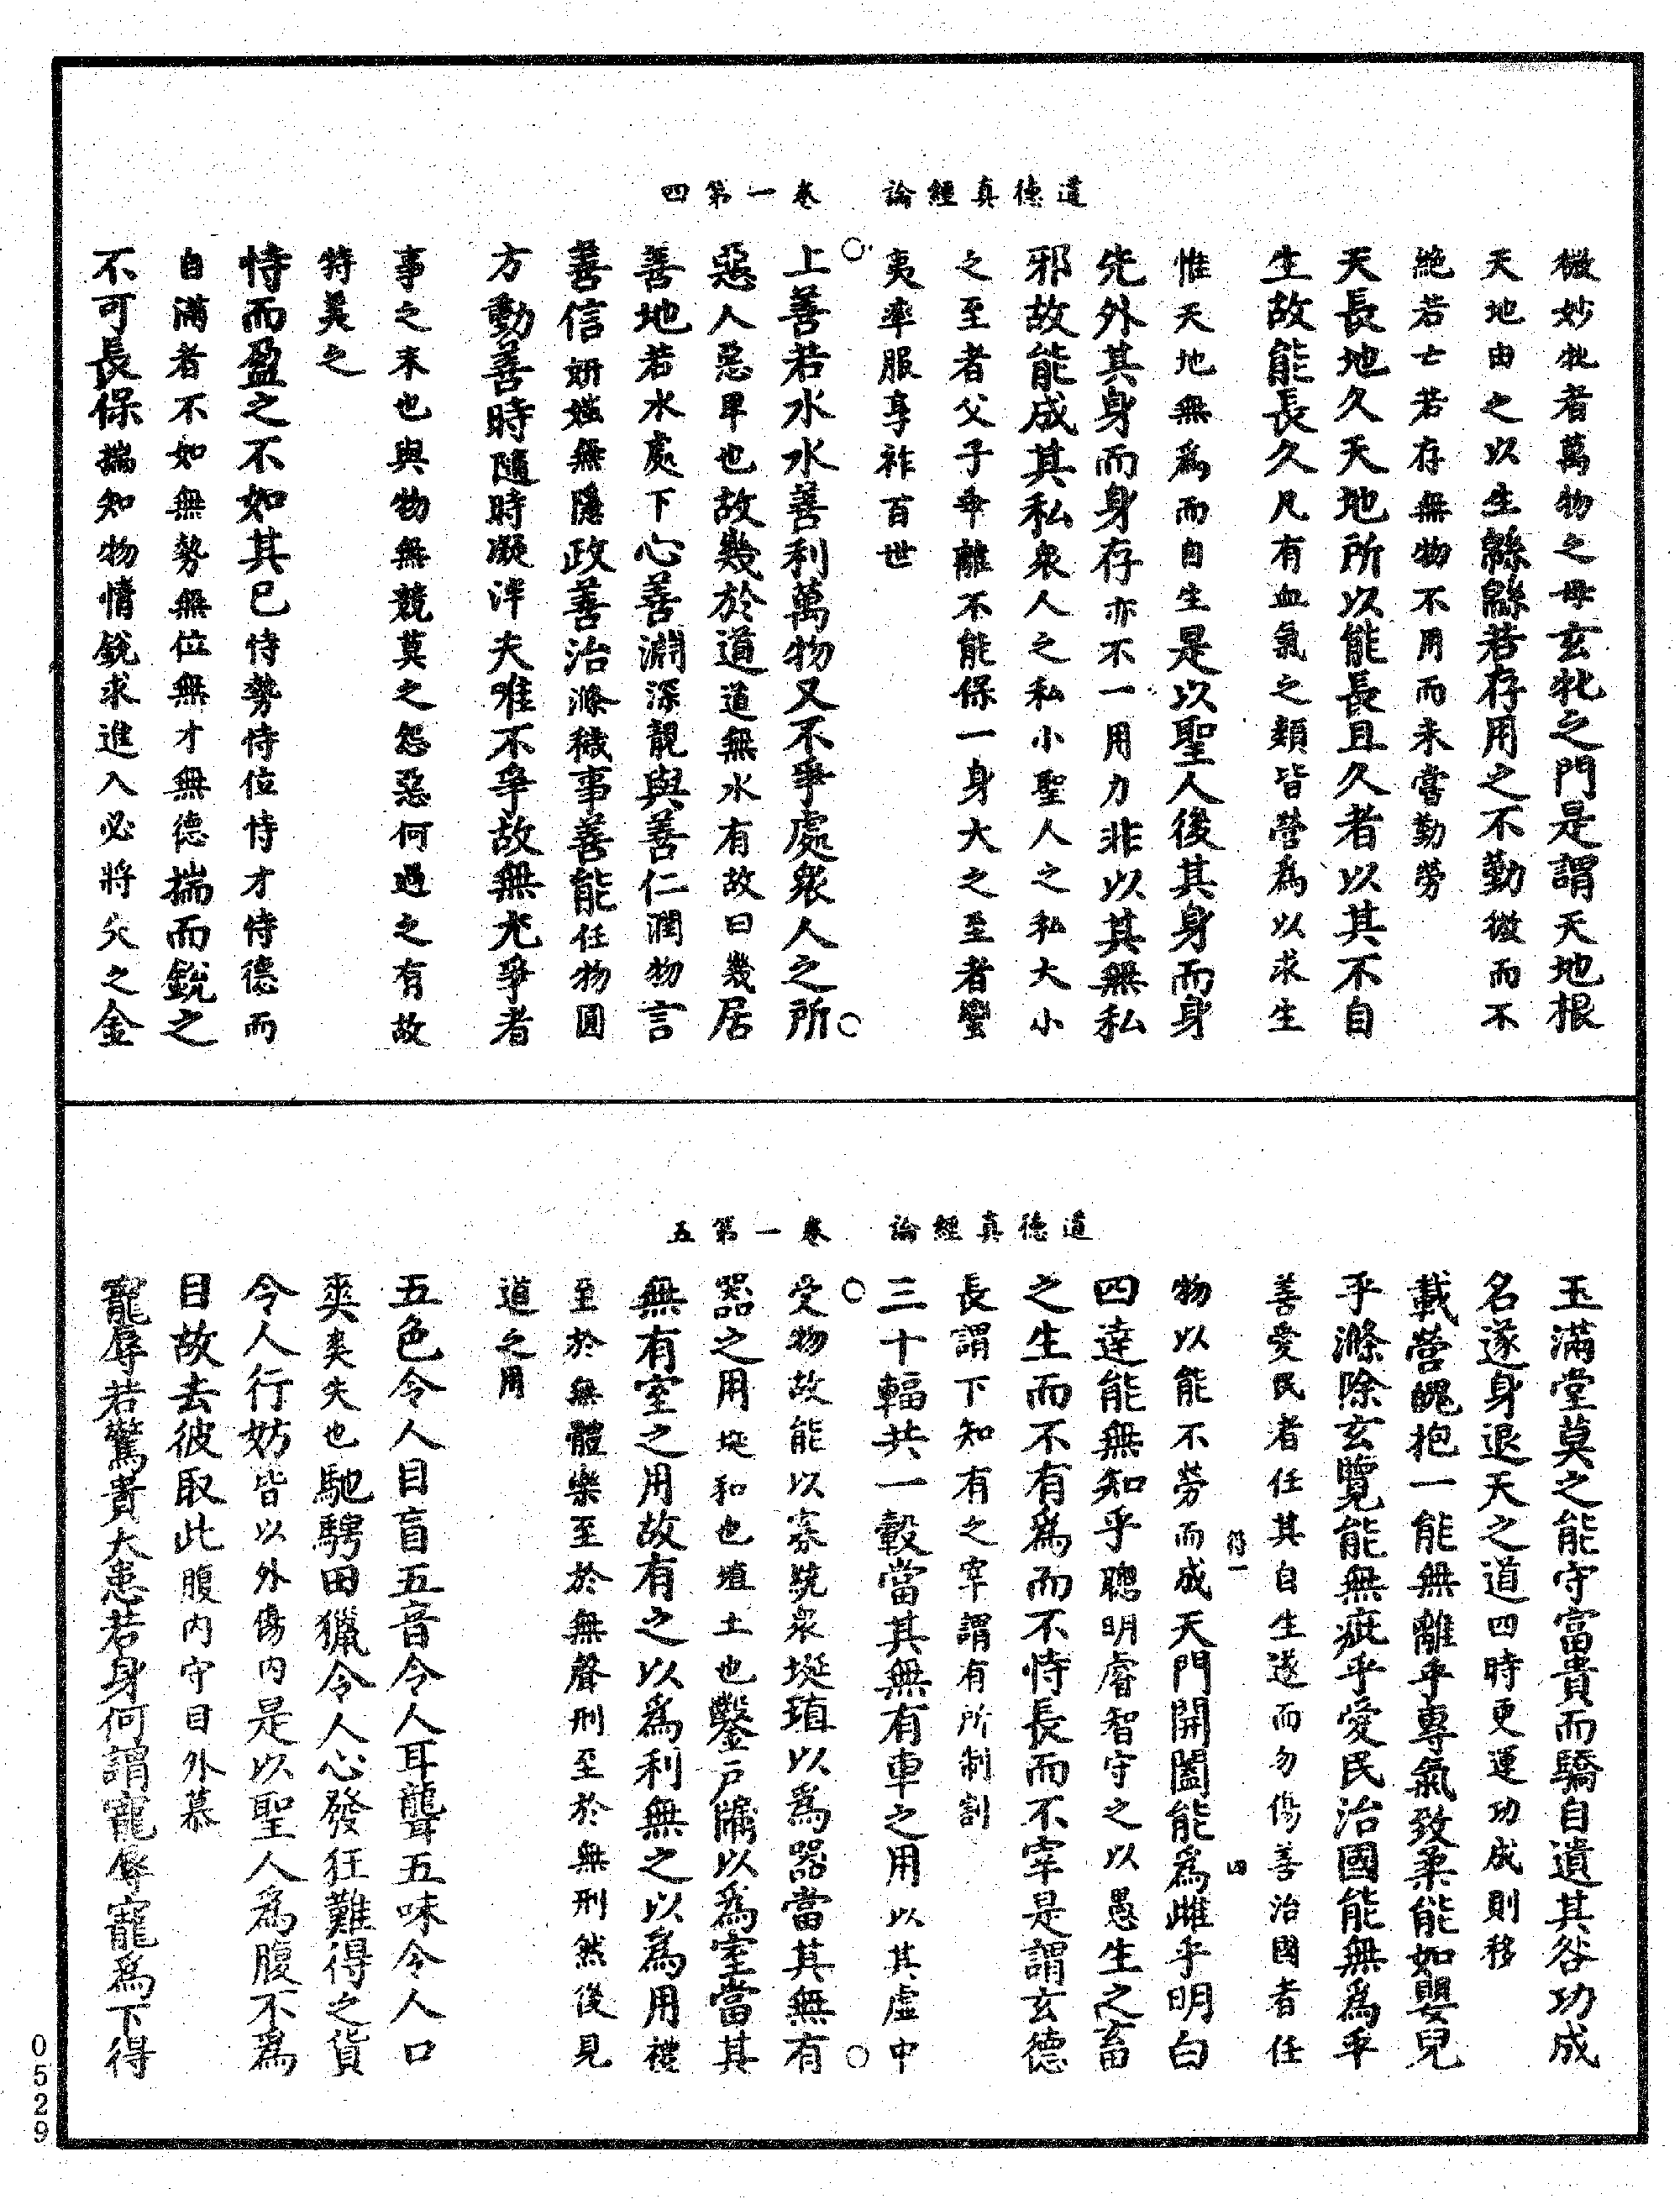 道德真經論　卷一第四
微妙牝者萬物之母玄牝之門是謂天地根
天地由之以生緜緜若存用之不勤微而不
絶若亡若存無物不用而未嘗勤勞
天長地久天地所以能長且久者以其不自
生故能長久凡有血氣之類皆營為以求生
惟天地無為而自生是以聖人後其身而身
先外其身而身存亦不一用力非以其無私
邪故能成其私衆人之私小聖人之私大小
之至者父子乖離不能保一身大之至者蠻
夷率服享祚百世
上善若水水善利萬物又不爭處衆人之所
惡人惡卑也故幾於道道無水有故曰幾居
善地若水處下心善淵深靚與善仁潤物言
善信妍媸無隱政善治滌穢事善能任物圓
方動善時隨時凝泮夫唯不爭故無尤爭者
事之末也與物無競莫之怨惡何過之有故
特美之
恃而盈之不如其已恃勢恃位恃才恃德而
自滿者不如無勢無位無才無德揣而銳之
不可長保揣知物情銳求進入必將失之金
道德真經論　卷一第五
玉滿堂莫之能守富貴而驕自遺其咎功成
名遂身退天之道四時更運功成則移
載營魄抱一能無離乎專氣致柔能如嬰兒
乎滌除玄覽能無疵乎愛民治國能無為乎
善愛民者任其自生遂而勿傷善治國者任
符一　四
物以能不勞而成天門開闔能為雌乎明白
四達能無知乎聰明睿智守之以愚生之畜
之生而不有為而不恃長而不宰是謂玄德
長謂下知有之宰謂有所制割
三十輻共一轂當其無有車之用以其虛中
受物故能以寡統衆埏埴以為器當其無有
器之用埏和也埴土也鑿戶牖以為室當其
無有室之用故有之以為利無之以為用禮
至於無體樂至於無聲刑至於無刑然後見
道之用
五色令人目盲五音令人耳聾五味令人口
爽爽失也馳騁田獵令人心發狂難得之貨
令人行妨皆以外傷内是以聖人為腹不為
目故去彼取此腹内守目外慕
寵辱若驚貴大患若身何謂寵辱寵為下得
0529